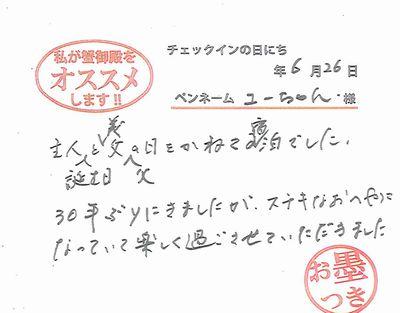 私が蟹御殿を
オススメ
します!!
チェックインの日にち
年 6 月 26 日
ペンネーム ユーちゃん 様
主人と義父の日をかねて宿泊でした。
誕生日 父
30年ぶりにきましたが、ステキなおへやに
なっていて楽しく過ごさせていただきました
お墨
つき